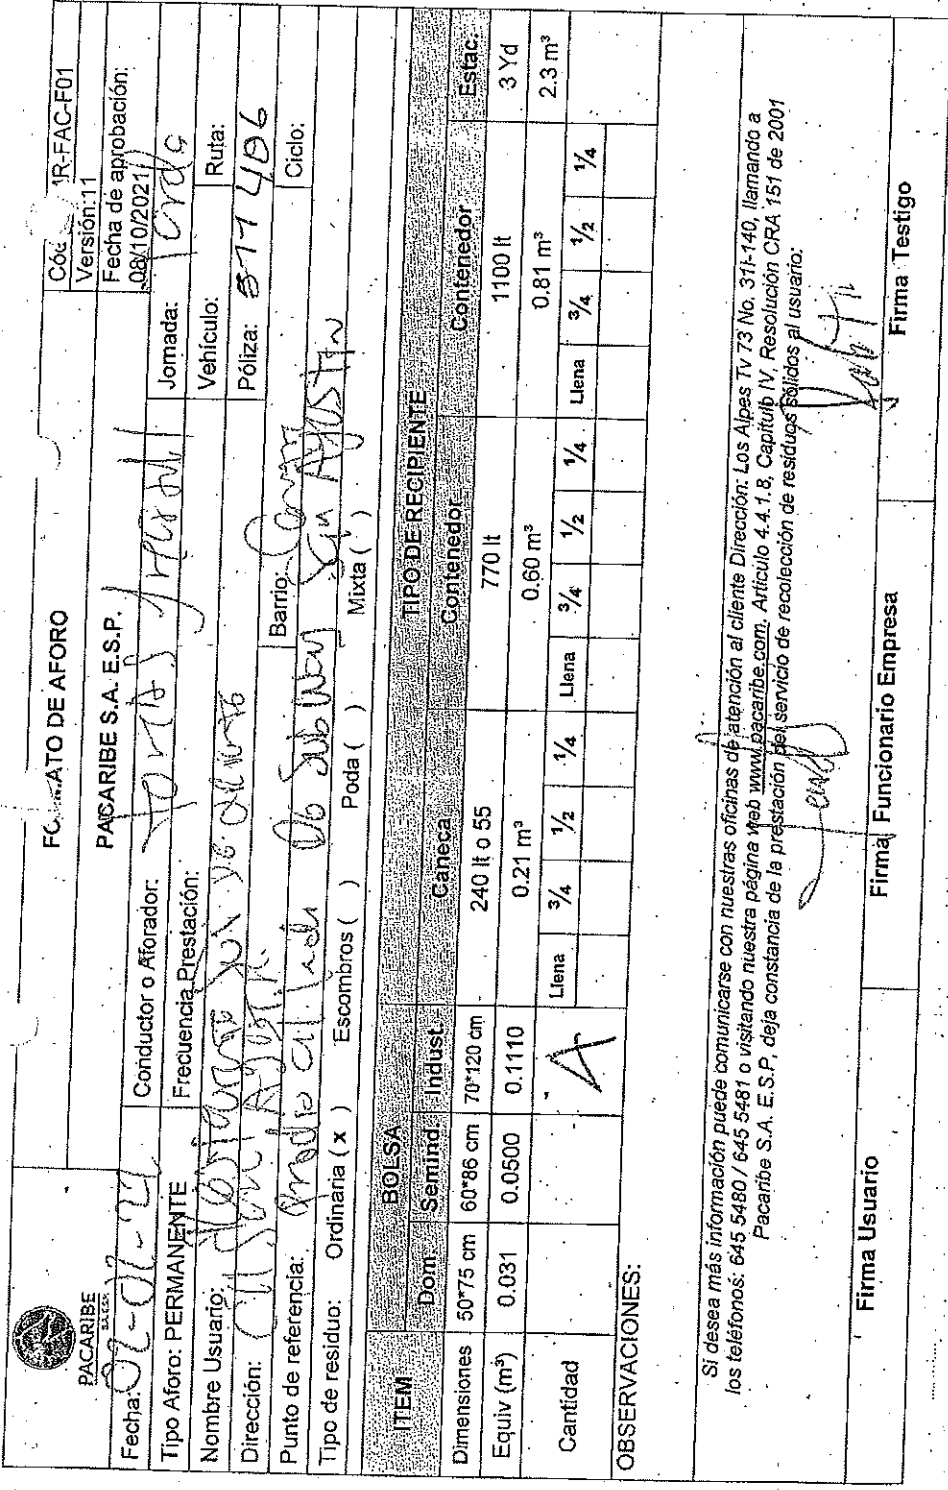 PACARIBE
S.A. E.S.P.
DE AFORO
PACARIBE S.A. E.S.P.
1R-FAC-F01
Versión:11
Fecha de aprobación:
08/10/2021
Fecha:
Conductor o Aforador:
Jornada:
Tipo Aforo: PERMANENTE
Frecuencia Prestación:
Vehículo:
Ruta:
Nombre Usuario: Restaurante
Póliza: 577406
Dirección: Cll San Agustin
Barrio: Centro
Ciclo:
Punto de referencia: San Agustin
Tipo de residuo: Ordinaria ( x ) Escombros ( ) Poda ( ) Mixta ( )
ITEM BOLSA TIPO DE RECIPIENTE
Dom. Semind. Indust. Caneca Contenedor Contenedor Estac.
Dimensiones 50*75 cm 60*86 cm 70*120 cm 240 lt o 55 770 lt 1100 lt 3 Yd
Equiv (m³) 0.031 0.0500 0.1110 0.21 m³ 0.60 m³ 0.81 m³ 2.3 m³
Cantidad Llena 3/4 1/2 1/4 Llena 3/4 1/2 1/4 Llena 3/4 1/2 1/4
OBSERVACIONES:
Si desea más información puede comunicarse con nuestras oficinas de atención al cliente Dirección: Los Alpes Tv 73 No. 31I-140, llamando a
los teléfonos: 645 5480 / 645 5481 o visitando nuestra página web www.pacaribe.com. Artículo 4.4.1.8, Capitulo IV, Resolución CRA 151 de 2001
Pacaribe S.A. E.S.P, deja constancia de la prestación del servicio de recolección de residuos sólidos al usuario:
Firma Usuario
Firma Funcionario Empresa
Firma Testigo